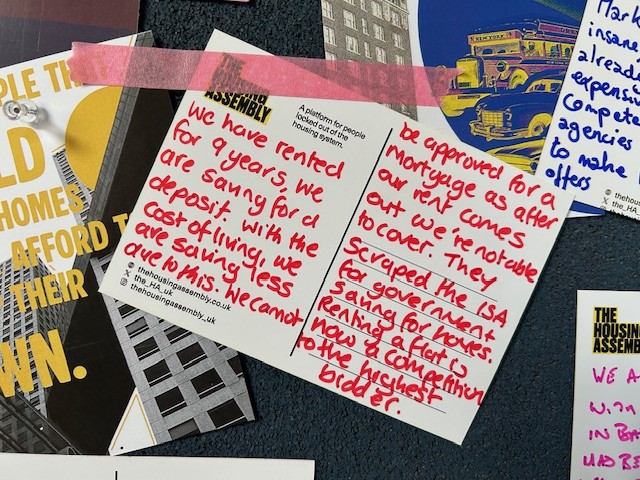 THE
HOUSING
ASSEMBLY
A platform for people
locked out of the
housing system.
We have rented
for 9 years, we
are saving for a
deposit. With the
cost of living, we
are saving less
due to this. We cannot
thehousingassembly.co.uk
the_HA_uk
thehousingassembly_uk
be approved for a
Mortgage as after
our rent comes
out we're not able
to cover. They
Scraped the ISA
for government
saving for homes.
Renting a flat is
now a competition
to the highest
bidder.
HOMES
AFFORD
THEIR
WN.
NEW YORK
Mark
insane
already
expensiv
Compete
agencies
to make
offers
THE
HOUSIN
ASSEMB
WE A
WITH
IN BA
HAD BE